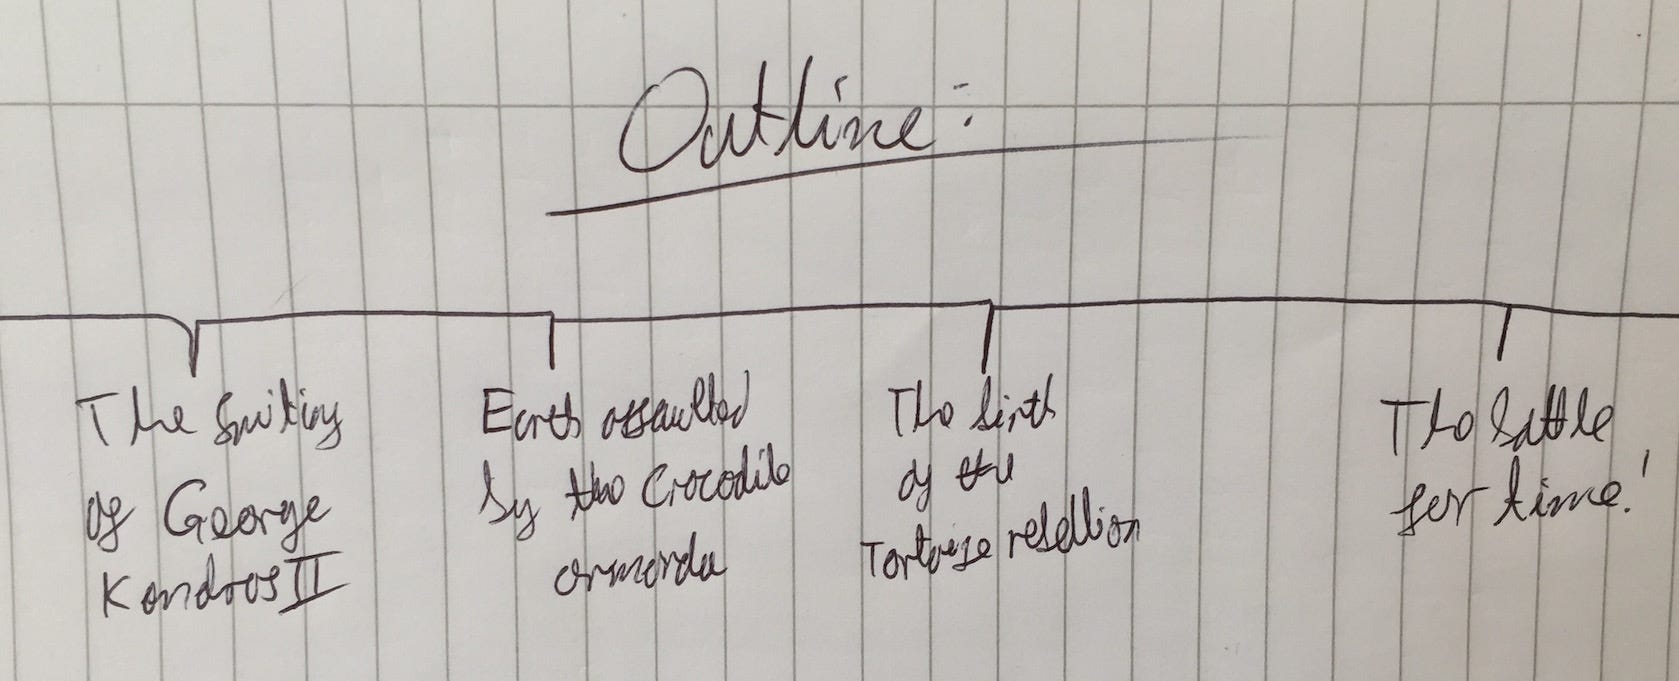 Outline:
The smiting
of George
Kondros II
Earth assaulted
by the Crocodile
armarda
The birth
of the
Tortoise rebellion
The battle
for time!